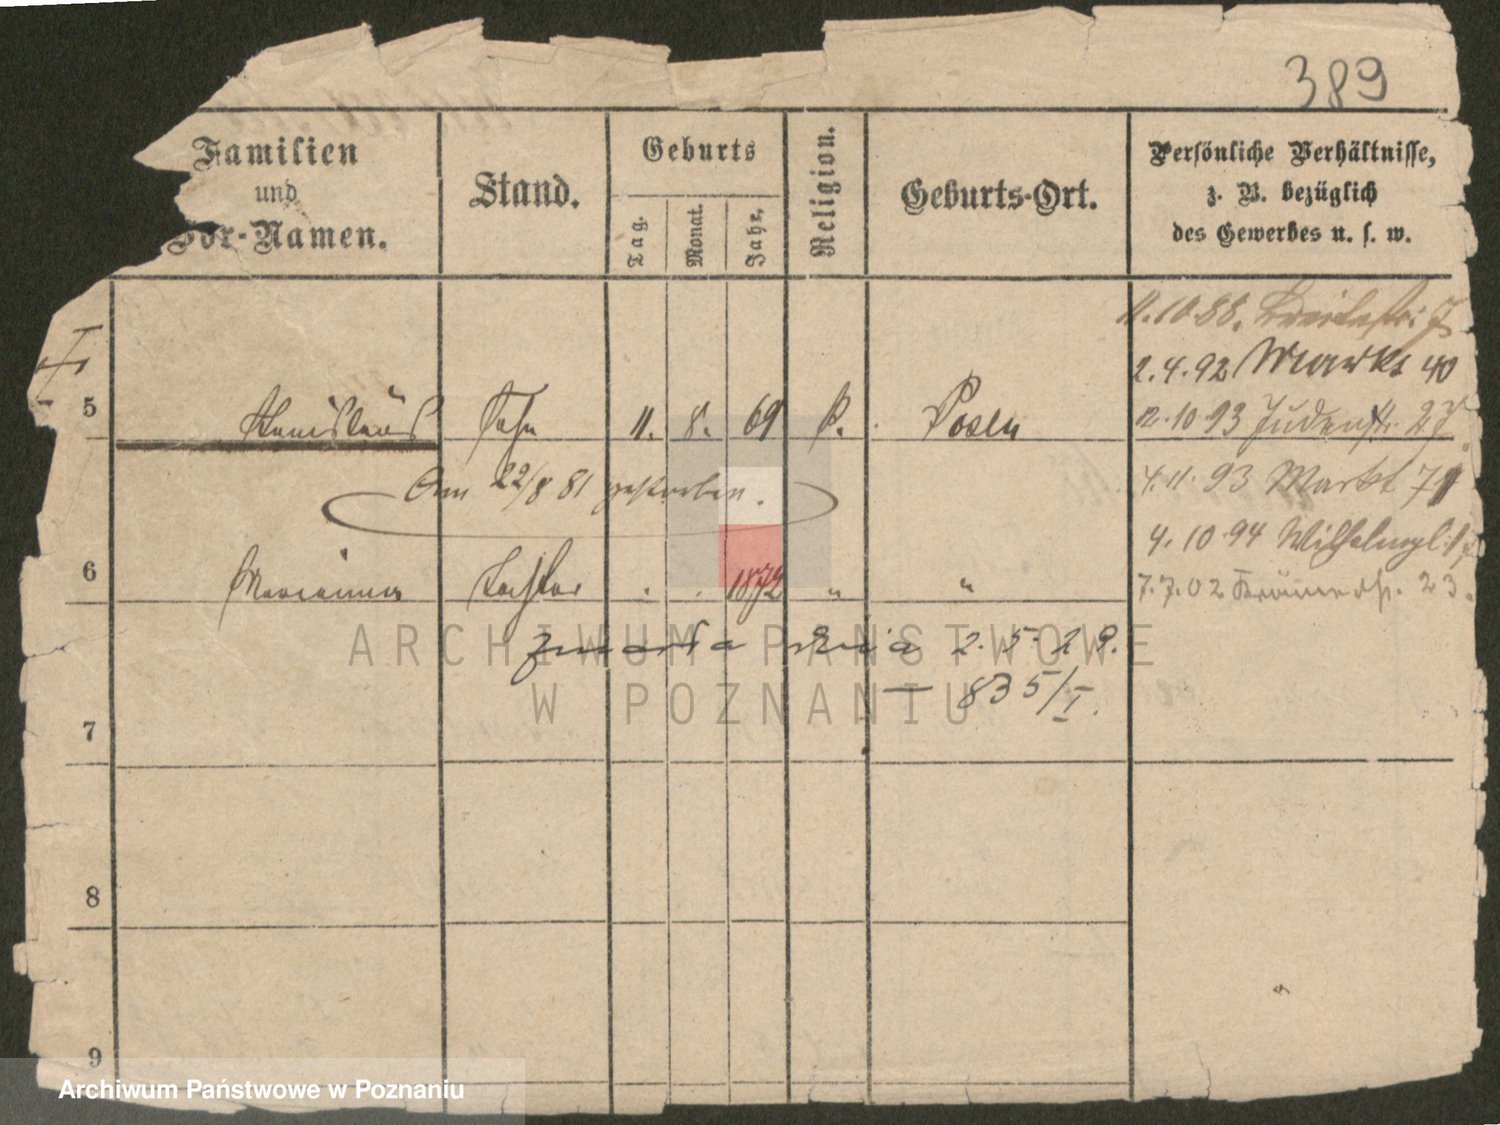 389
Familien
und
Vor-Namen.
Stand.
Geburts
Tag.
Monat.
Jahr.
Religion.
Geburts-Ort.
Persönliche Verhältnisse,
z. B. bezüglich
des Gewerbes u. s. w.
11.10.88. Breitestr. 7
2.4.92 Markt 40
5 Stanislaus Sohn 11. 8. 69 k. Posen
12.10.93 Judenstr. 27
Am 22/8 81 gestorben.
4.11.93 Markt 71
4.10.94 Wilhelmpl.
6 Marianna Tochter . . 1872 " "
7.7.02 Krämerstr. 23.
zmarła dnia 2.5.29.
— 835/I.
7
8
9
ARCHIWUM PAŃSTWOWE
W POZNANIU
Archiwum Państwowe w Poznaniu